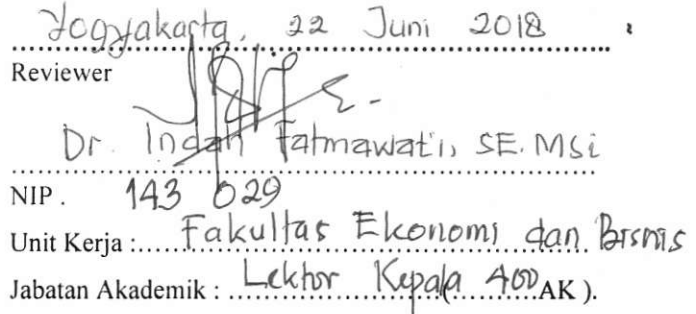 Yogyakarta, 22 Juni 2018
Reviewer
Dr. Indah Fatmawati, SE. MSi
NIP. 143 029
Unit Kerja : Fakultas Ekonomi dan Bisnis
Jabatan Akademik : Lektor Kepala (400 AK ).